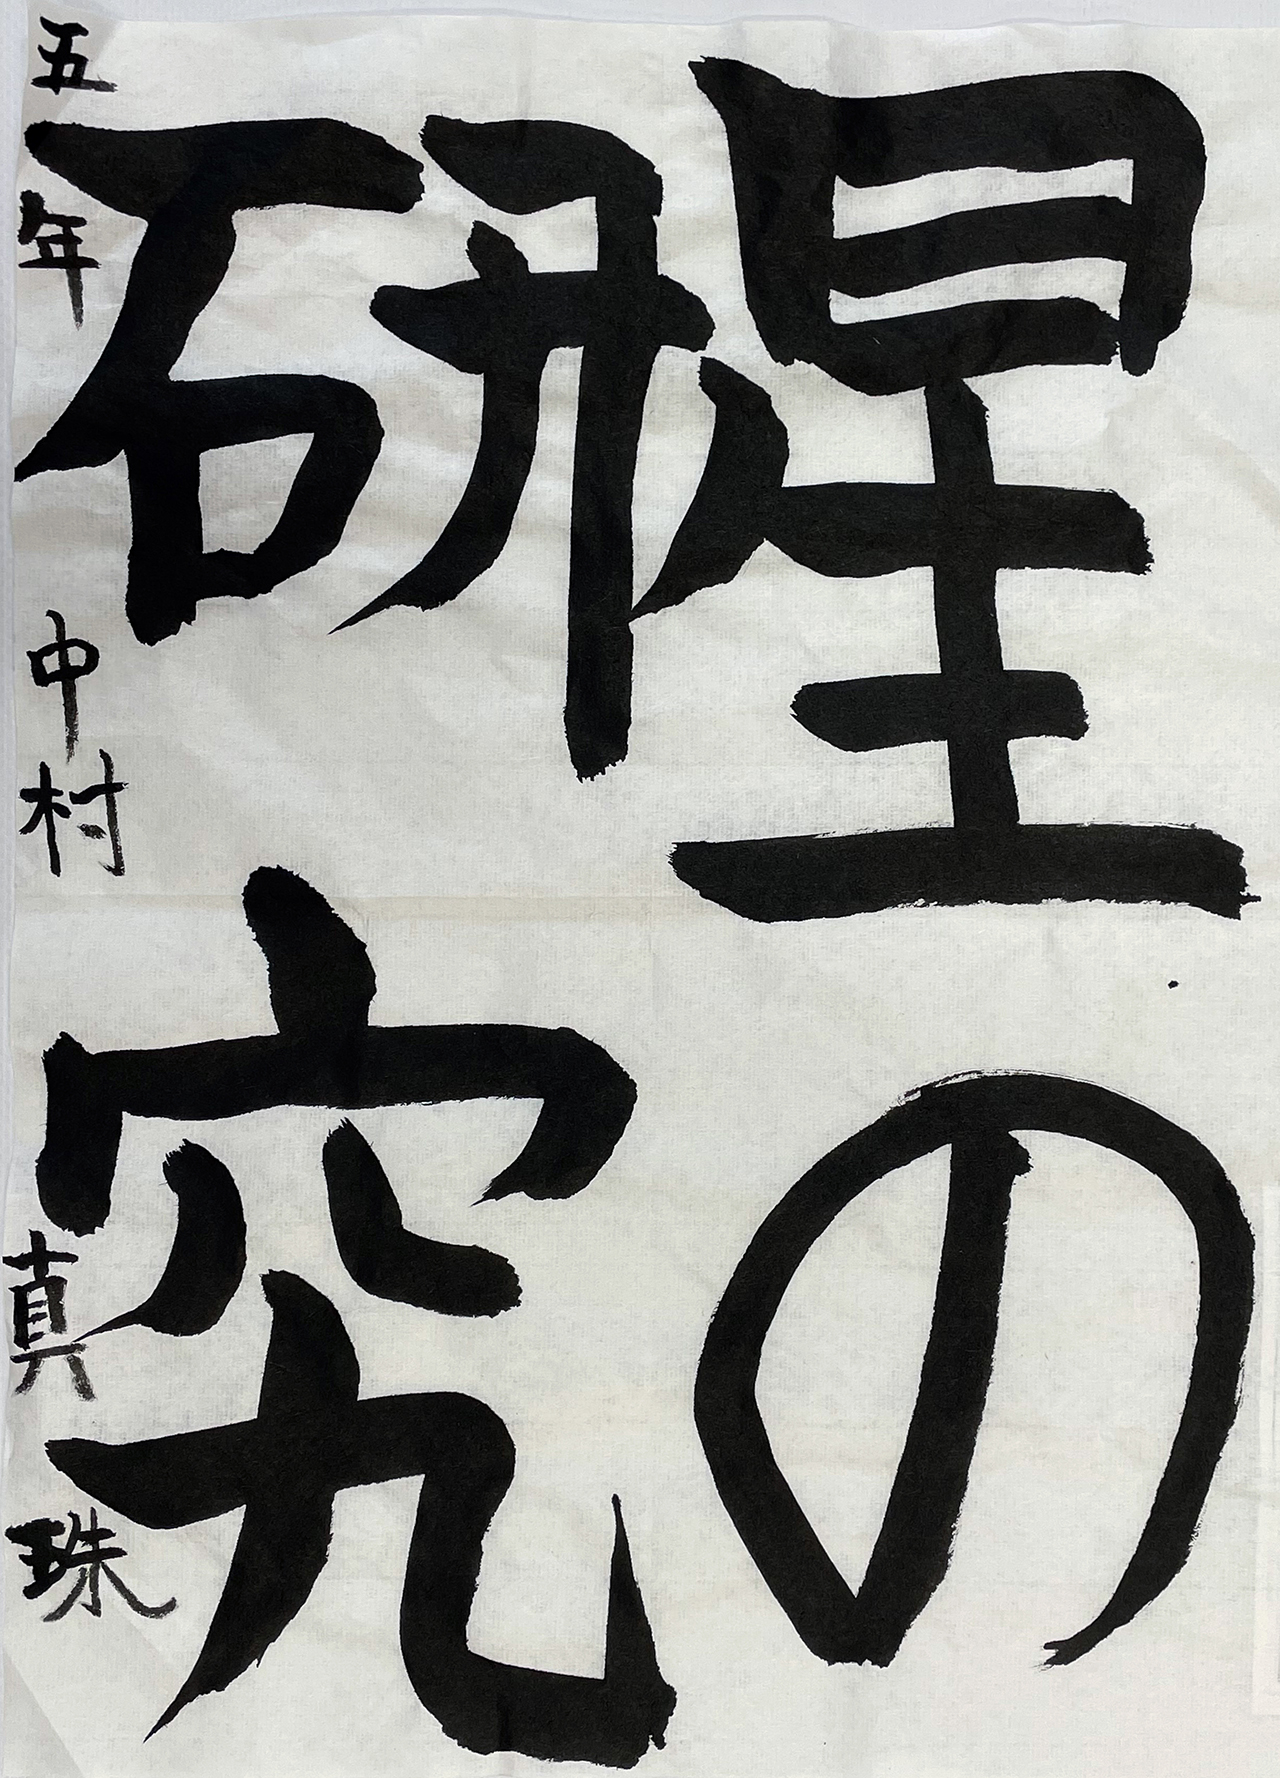 星の
研究
五年 中村 真珠